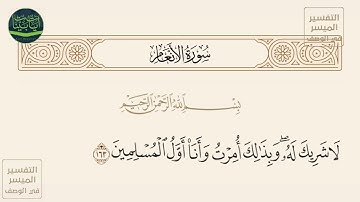 التفسير
الميسر
في الوصف
سُورَةُ الأَنْعَامِ
بِسْمِ اللَّهِ الرَّحْمَٰنِ الرَّحِيمِ
لَا شَرِيكَ لَهُۥۖ وَبِذَٰلِكَ أُمِرْتُ وَأَنَا۠ أَوَّلُ ٱلْمُسْلِمِينَ ١٦٣
التفسير
الميسر
في الوصف